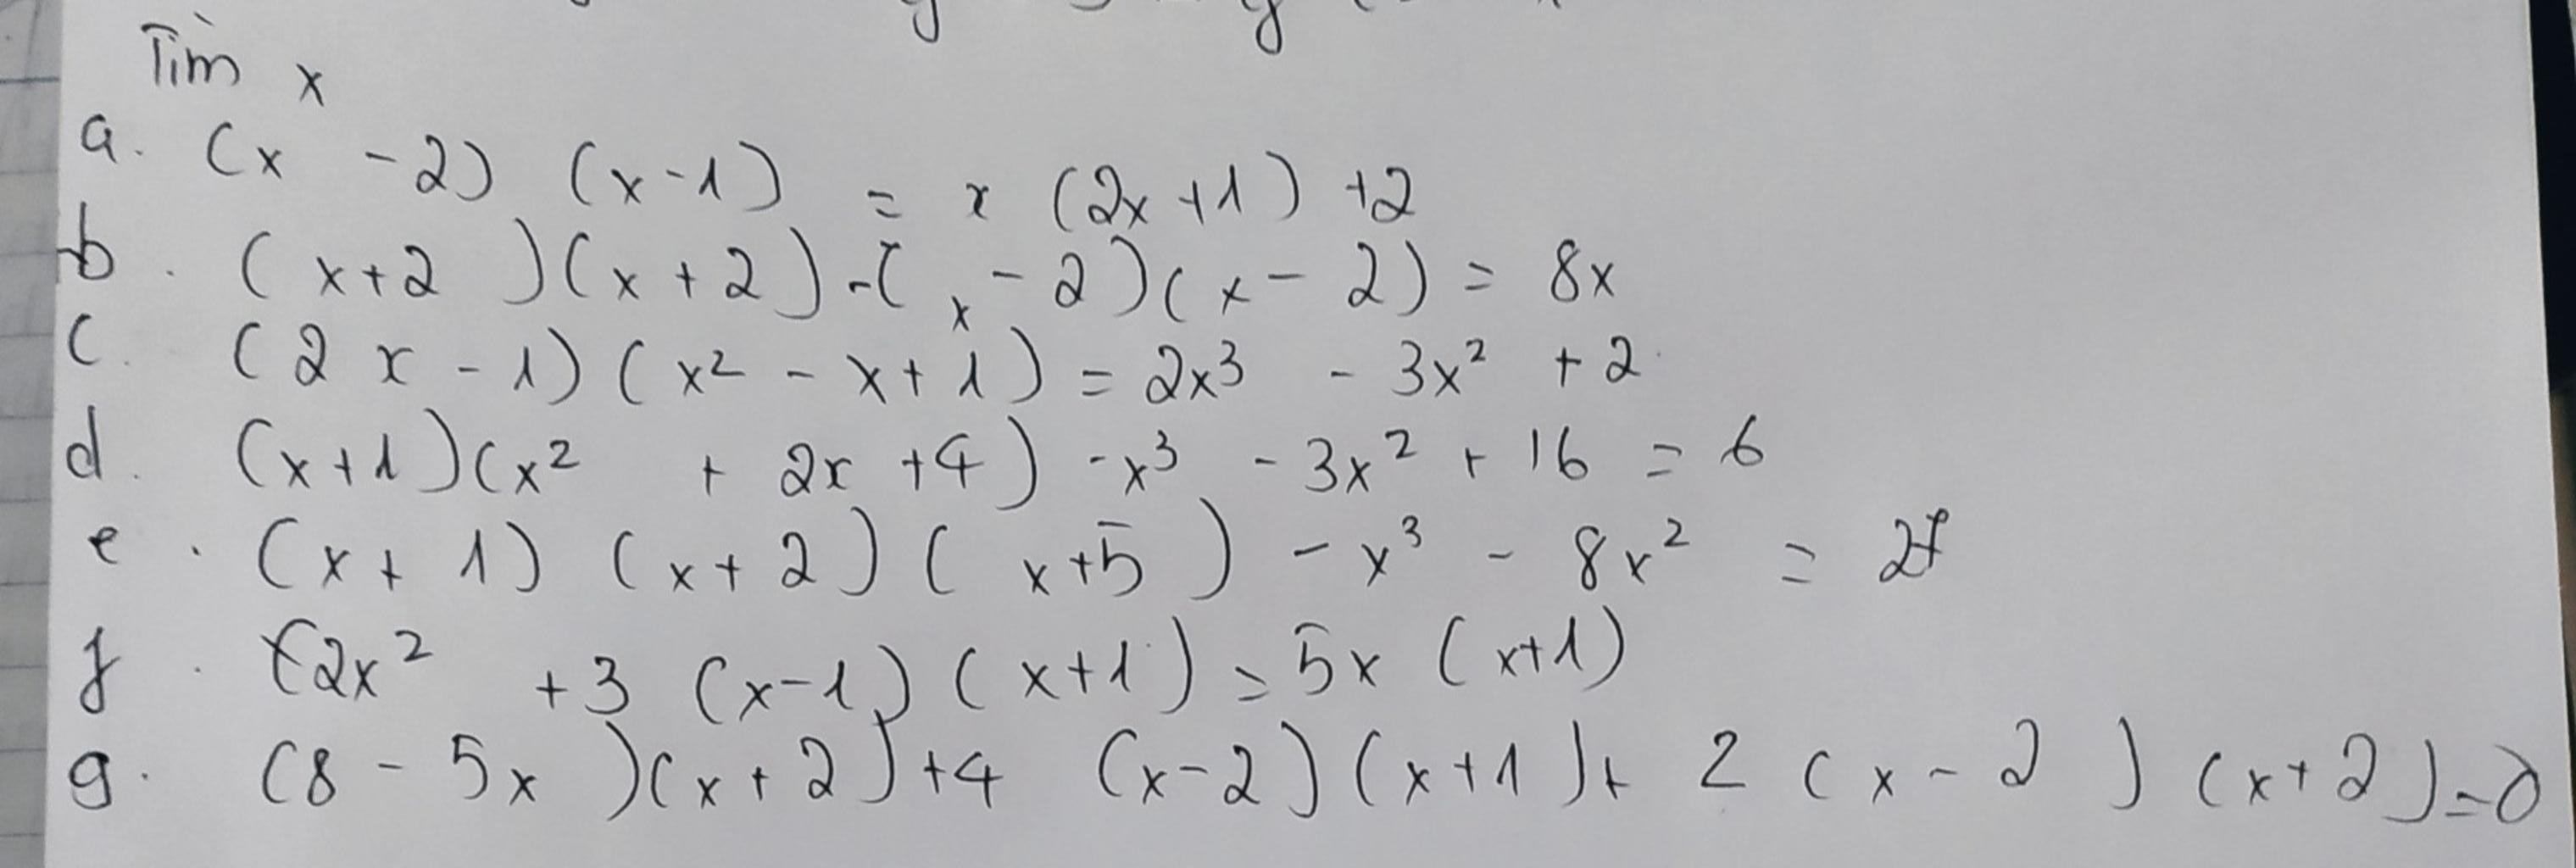 Tìm x
a. (x - 2) (x - 1) = x (2x + 1) + 2
b. (x + 2)(x + 2) - (x - 2)(x - 2) = 8x
c. (2x - 1)(x² - x + 1) = 2x³ - 3x² + 2
d. (x + 1)(x² + 2x + 4) - x³ - 3x² + 16 = 6
e. (x + 1)(x + 2)(x + 5) - x³ - 8x² = 27
f. (2x² + 3 (x - 1)(x + 1) = 5x (x + 1)
g. (8 - 5x)(x + 2) + 4 (x - 2)(x + 1) + 2 (x - 2)(x + 2) = 0